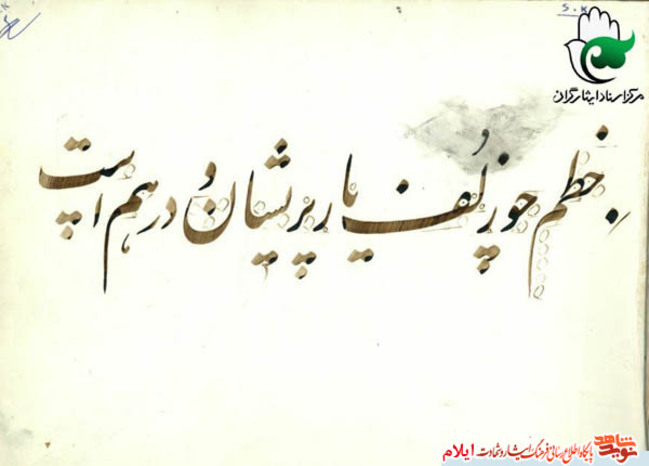 S.K
مرکز اسناد ایثارگران
خطم چو زلف یار پریشان و درهم است
نوید شاهد
پایگاه اطلاع رسانی فرهنگ ایثار و شهادت ایلام